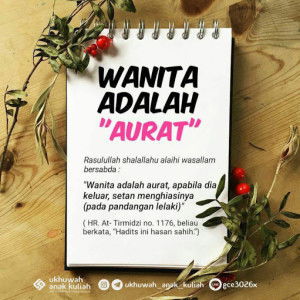 WANITA
ADALAH
"AURAT"
Rasulullah shalallahu alaihi wasallam
bersabda :
"Wanita adalah aurat, apabila dia
keluar, setan menghiasinya
(pada pandangan lelaki)"
( HR. At- Tirmidzi no. 1176, beliau
berkata, "Hadits ini hasan sahih.")
ukhuwah
anak kuliah
ukhuwah_anak_kuliah
gce3026x